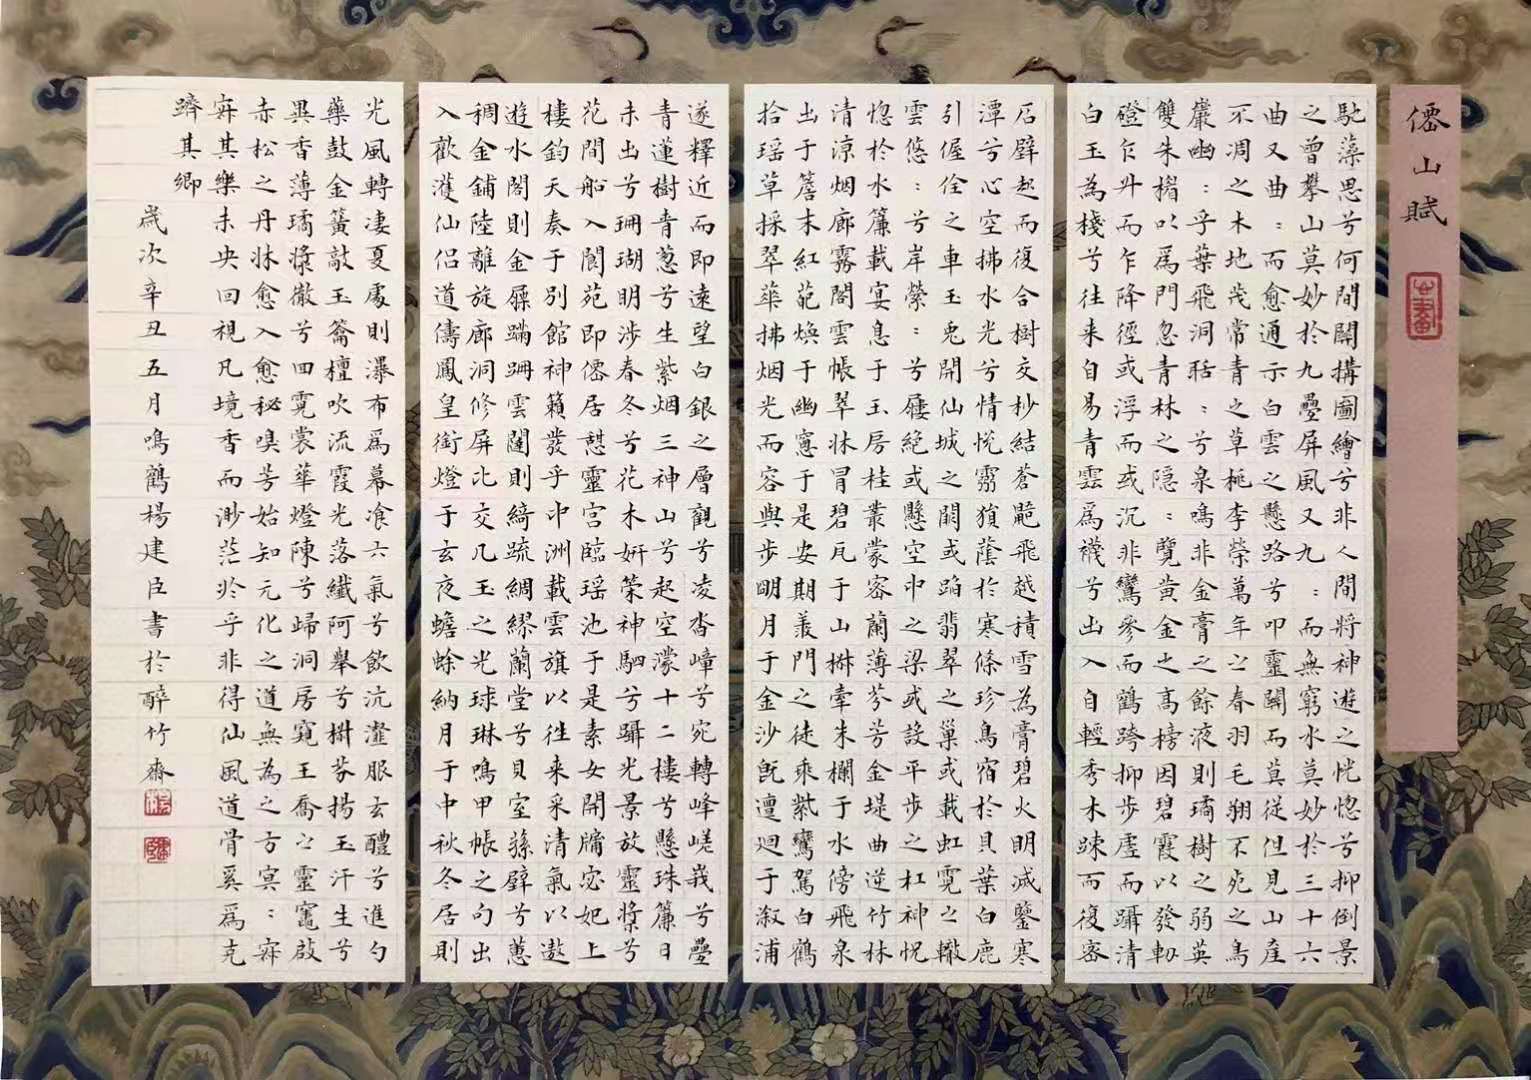 僊山賦
馳藻思兮何間闢搆圖繪兮非人間將神遊之恍惚兮抑倒景
之曾攀山莫妙於九疊屏風又九〻而無窮水莫妙於三十六
曲又曲〻而愈通示白雲之懸路兮叩靈關而莫從但見山崖
不凋之木地茂常青之草桃李榮萬年之春羽毛翔不死之鳥
巖幽〻乎葉飛洞聒〻兮泉鳴非金膏之餘液則璚樹之弱英
雙朱榴以為門忽青林之隱〻覽黃金之高榜因碧霞以發軔
磴乍升而乍降徑或浮而或沉非鸞驂而鶴跨抑步虛而躡清
白玉為棧兮往来自易青雲為襪兮出入自輕秀木踈而復密
石壁起而復合樹交杪結蒼葩飛越積雪為膏碧火明滅鑿寒
潭兮心空拂水光兮情悅霧猶蔭於寒條珍鳥宿於貝葉白鹿
引偓佺之車玉兔開仙城之關或蹈翡翠之巢或載虹霓之轍
雲悠〻兮岸縈〻兮屨絕或懸空中之梁或設平步之杠神怳
惚於水簾載宴息于玉房桂叢蒙容蘭薄芬芳金堤曲逆竹林
清涼烟廊霧閣雲帳翠牀冒碧瓦于山樹牽朱欄于水傍飛泉
出于簷末紅葩煥于幽窻于是安期羨門之徒乘紫鸞駕白鶴
拾瑶草採翠華拂烟光而容與步明月于金沙既邅迴于溆浦
遂釋近而即遠望白銀之層觀兮凌沓嶂兮宛轉峰嵯峩兮疊
青蓮樹青蔥兮生紫烟三神山兮起空濛十二樓兮懸珠簾日
未出兮珊瑚明涉春冬兮花木妍策神駟兮躡光景放靈槳兮
花間船入閬苑即僊居憇靈宮臨瑶池于是素女開牖宓妃上
樓鈞天奏于別館神籟發乎中洲載雲旗以往来采清氣以遨
遊水閣則金屧蹣跚雲闥則綺疏綢繆蘭堂兮貝室蓀壁兮蕙
稠金鋪陸離旋廊洞修屏比交几玉之光球琳鳴甲帳之句出
入歡濩仙侣道儔鳳皇銜燈于玄夜蟾蜍納月于中秋冬居則
光風轉凄夏處則瀑布為幕飡六氣兮飲沆瀣服玄醴兮進勺
藥鼓金簧敲玉籥檀吹流霞光落纖阿舉兮樹芬揚玉汗生兮
異香薄璚漿徹兮回霓裳華燈陳兮歸洞房寛王喬之靈竈啟
赤松之丹牀愈入愈秘嗅芳始知元化之道無為之方冥〻寂
寂其樂未央回視凡境杳而渺茫於乎非得仙風道骨奚為克
躋其卿
歲次辛丑五月鳴鶴楊建臣書於醉竹齋